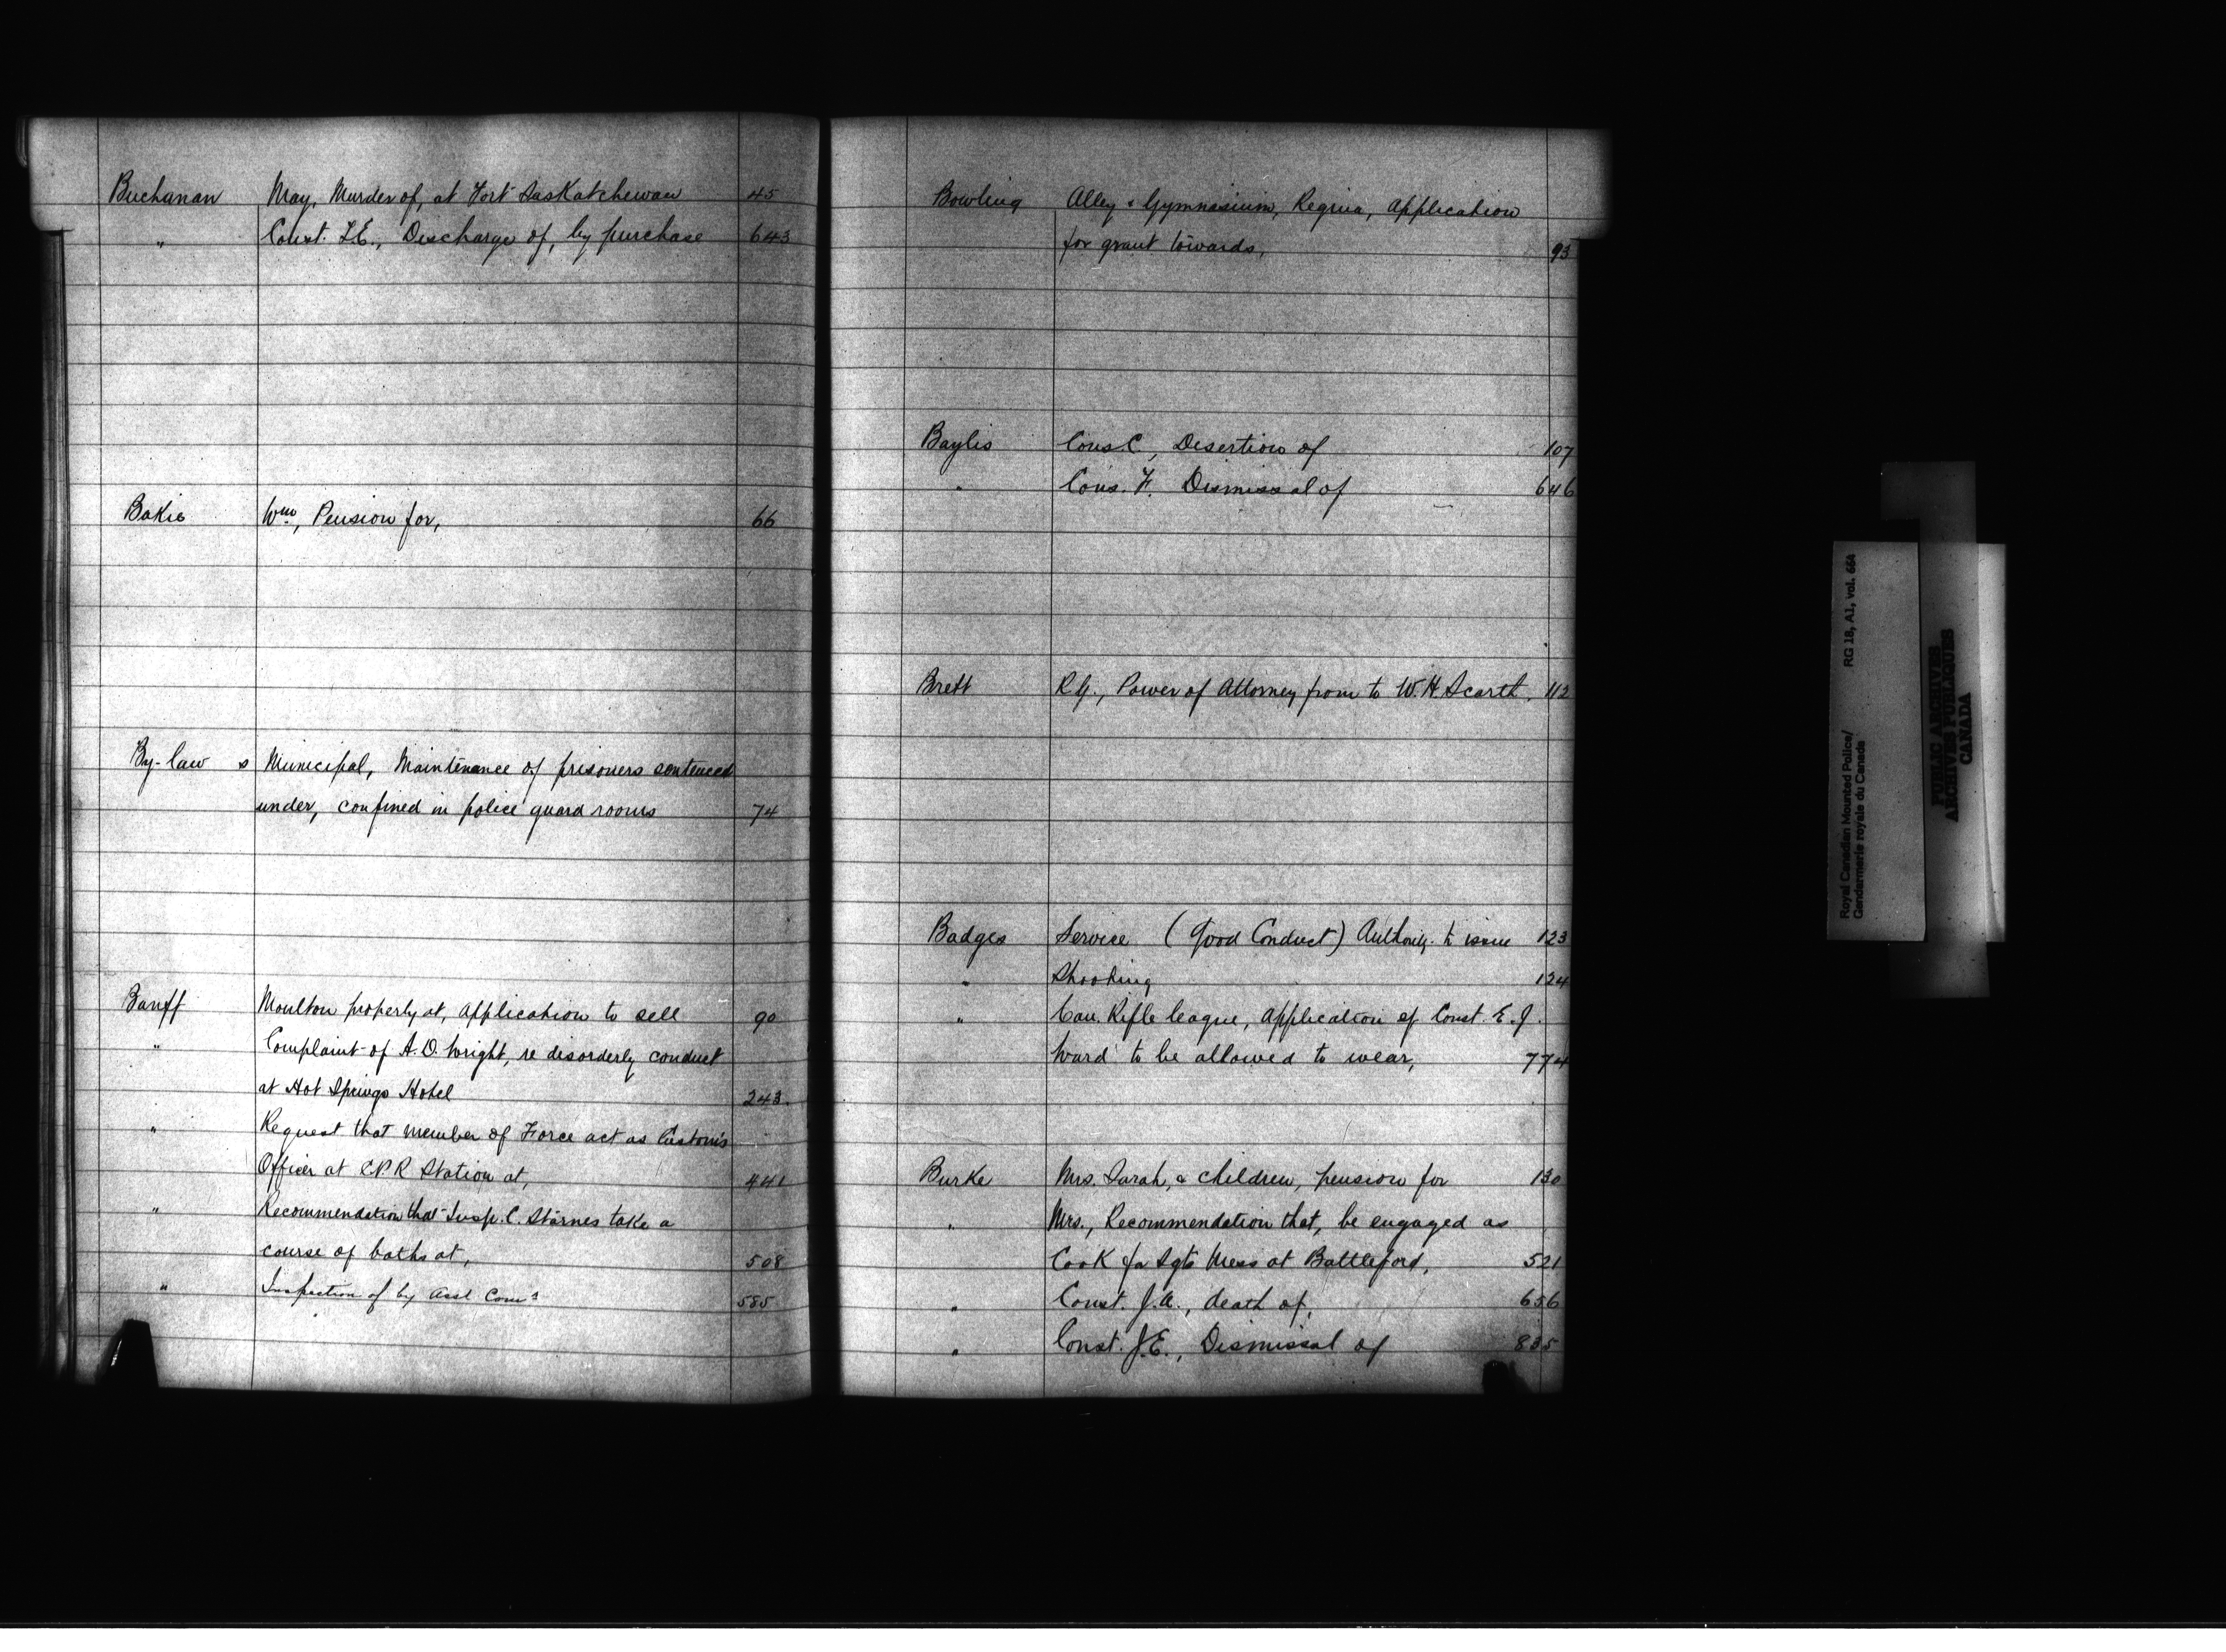 Buchanan May, Murder of, at Fort Saskatchewan 45
" Const. F.E., Discharge of, by purchase 643
Bakie Wm, Pension for, 66
By-laws Municipal, Maintenance of prisoners sentenced
under, confined in police guard rooms 74
Banff Moulton property at, Application to sell 90
" Complaint of A.O. Wright, re disorderly conduct
at Hot Springs Hotel 243
" Request that member of Force act as Customs
Officer at C.P.R Station at, 441
" Recommendation that Insp. C. Starnes take a
course of baths at, 508
" Inspection of by Asst Comr 585
Bowling Alley & Gymnasium, Regina, Application
for grant towards, 93
Baylis Cons. C., Desertion of 107
" Cons. F. Dismissal of 646
Brett R.G., Power of Attorney from to W.H. Scarth. 112
Badges Service (Good Conduct) Authority to issue 123
" Shooting 124
" Can. Rifle League, Application of Const. E.J.
Ward to be allowed to wear, 774
Burke Mrs. Sarah, & children, pension for 130
" Mrs., Recommendation that, be engaged as
Cook for Sgts Mess at Battleford, 521
" Const. J.A., death of, 656
" Const. J.E., Dismissal of 835
Royal Canadian Mounted Police/ RG 18, A1, vol. 664
Gendarmerie royale du Canada
PUBLIC ARCHIVES
ARCHIVES PUBLIQUES
CANADA